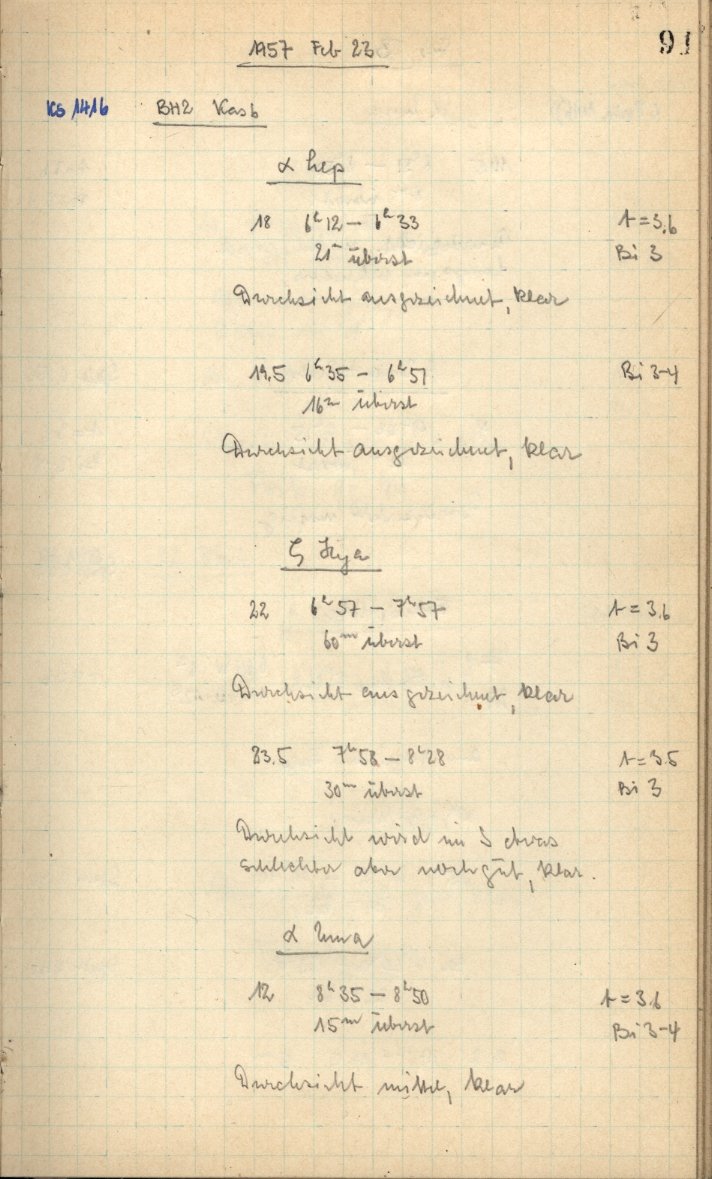 91
1957 Feb 23
KS 1416 BH2 Kas b
α Lep
18 6ʰ12 – 6ʰ33 t = 3.6
21ᵐ überst Bi 3
Durchsicht ausgezeichnet, klar
19.5 6ʰ35 – 6ʰ51 Bi 3-4
16ᵐ überst
Durchsicht ausgezeichnet, klar
ζ Hya
22 6ʰ57 – 7ʰ57 t = 3.6
60ᵐ überst Bi 3
Durchsicht ausgezeichnet, klar
23.5 7ʰ58 – 8ʰ28 t = 3.5
30ᵐ überst Bi 3
Durchsicht wird im S etwas
schlechter aber noch gut, klar.
α Uma
12 8ʰ35 – 8ʰ50 t = 3.6
15ᵐ überst Bi 3-4
Durchsicht mittel, klar